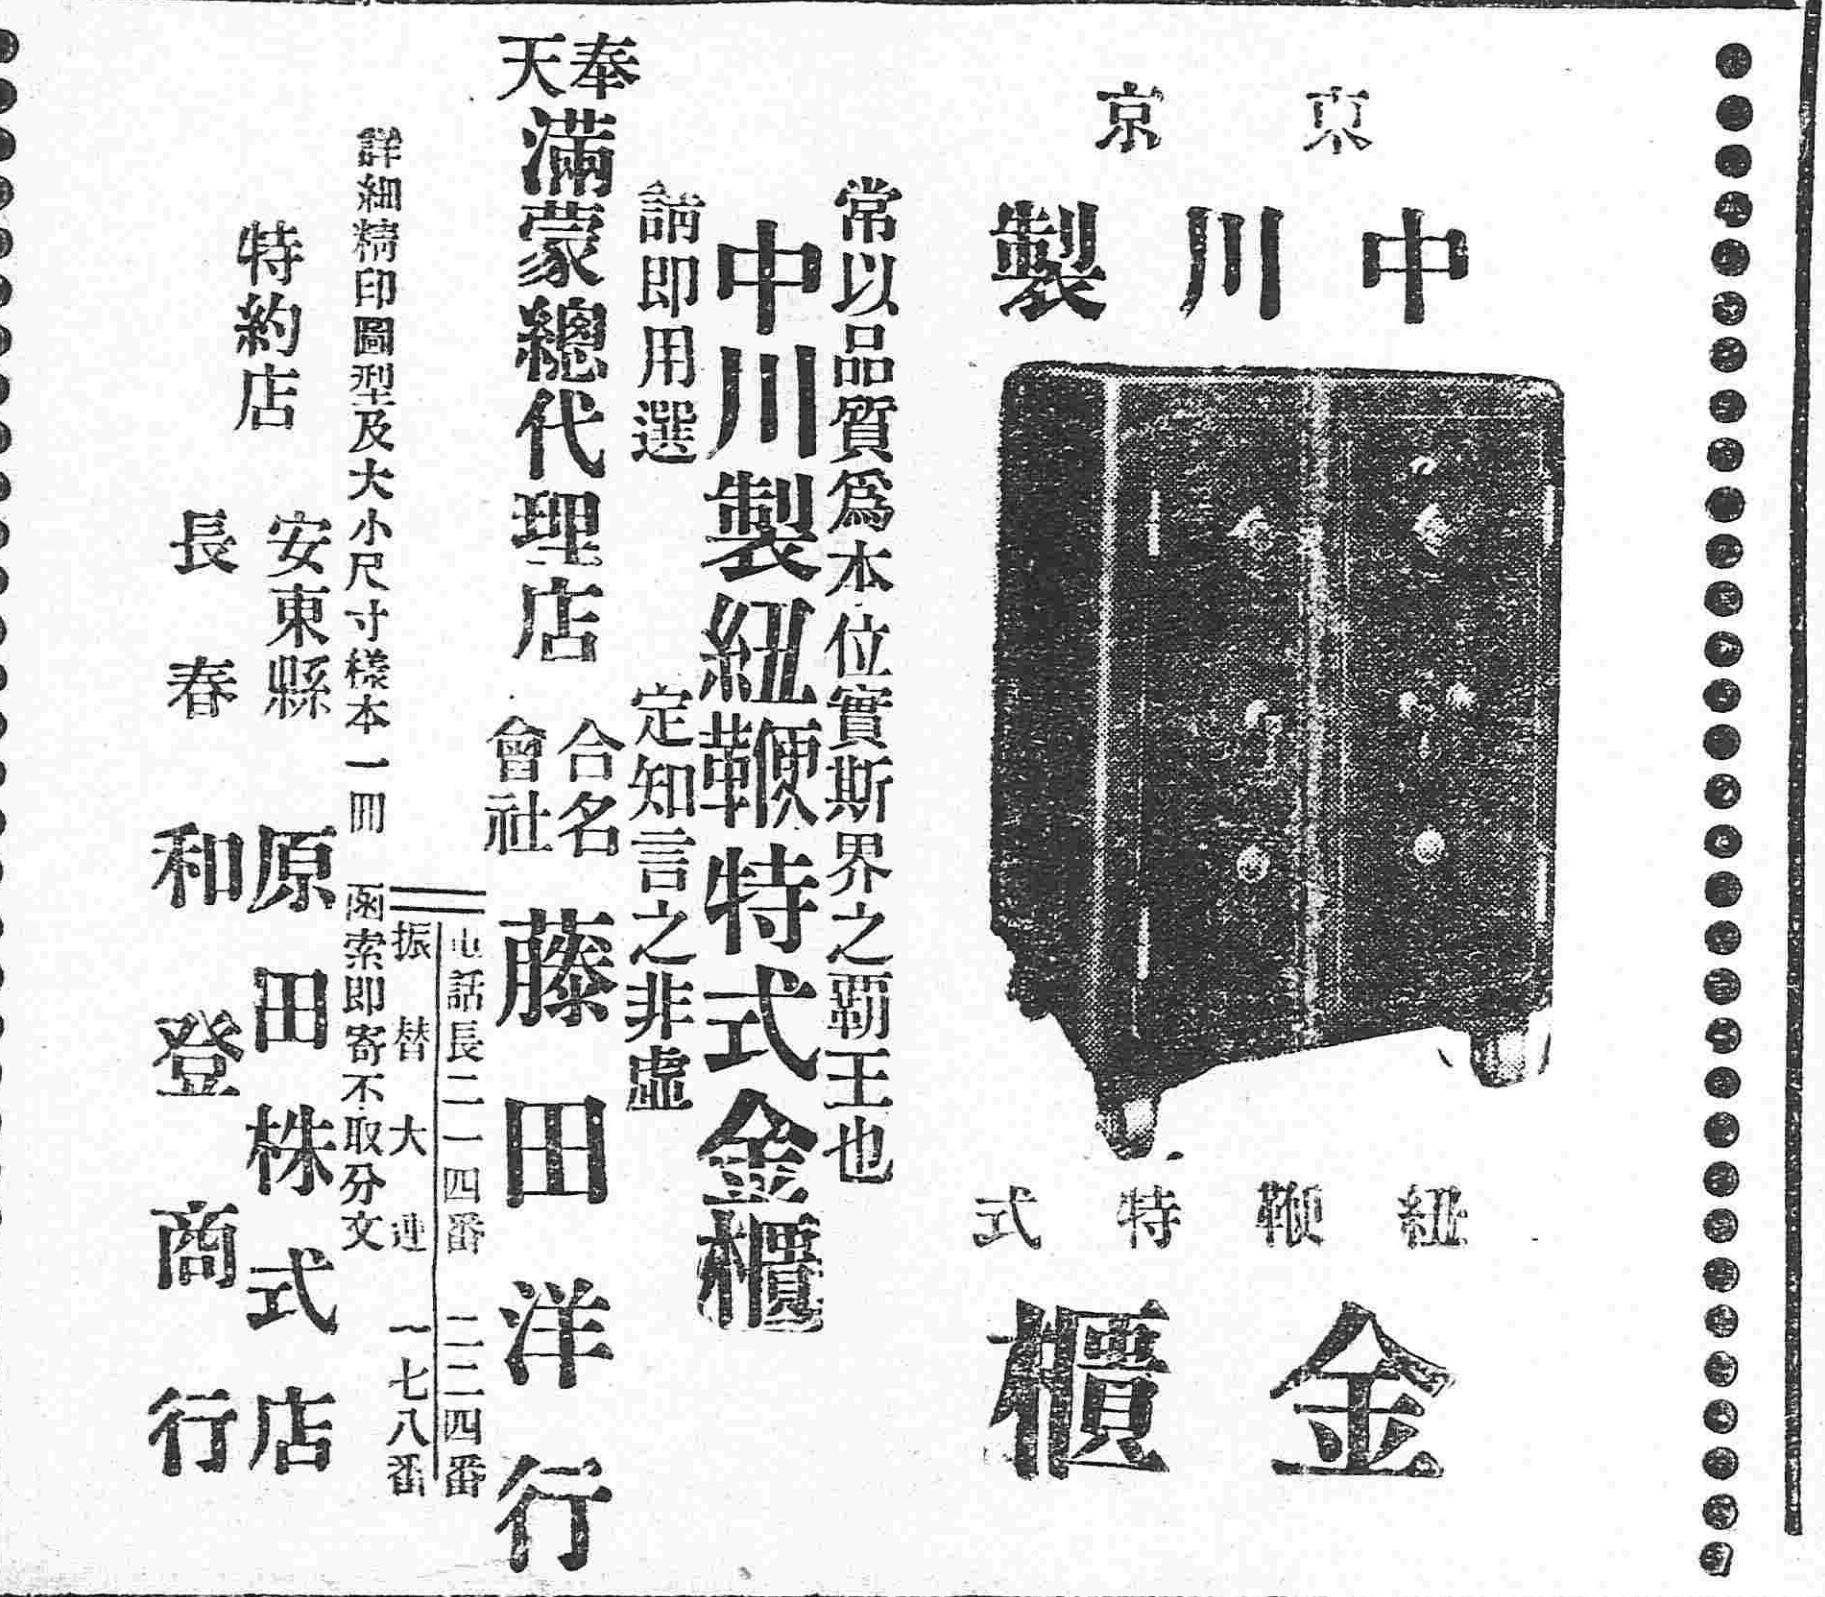 東京
中川製
紐鞭特式
金櫃
常以品質爲本位實斯界之覇王也
中川製紐鞭特式金櫃
請即用選 定知言之非虛
奉天
滿蒙總代理店 合名會社 藤田洋行
電話長二一四番 二二四番
振替大連 一七八番
詳細精印圖型及大小尺寸樣本一冊 函索即寄不取分文
特約店
安東縣 原田株式店
長春 和登商行